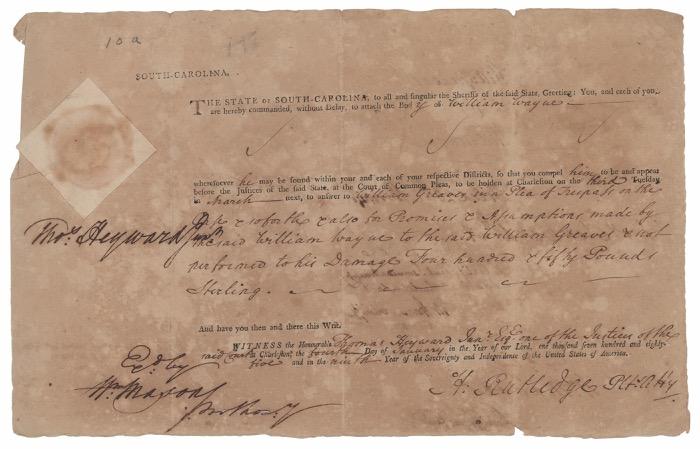 10a
SOUTH-CAROLINA.
THE STATE OF SOUTH-CAROLINA, to all and singular the Sheriffs of the said State, Greeting: You, and each of you,
are hereby commanded, without Delay, to attach the Body of William Wayne
wheresoever he may be found within your and each of your respective Districts, so that you compel him to be and appear
before the Justices of the said State, at the Court of Common Pleas, to be holden at Charleston on the third Tuesday
in March next, to answer to William Greaves in a Plea of Trespass on the
& so forth & also for Promises & Assumptions made by
the said William Wayne to the said William Greaves & not
performed to his Damage Four hundred & fifty Pounds
Sterling.
Thos. Heyward Junr.
And have you then and there this Writ.
WITNESS the Honorable Thomas Heyward Junr. Esqr. one of the Justices of the
said Court at Charleston, the fourth Day of January in the Year of our Lord, one thousand seven hundred and eighty-
five and in the ninth Year of the Sovereignty and Independence of the United States of America.
Exd. by
Wm. Mason
H: Rutledge Plt's Atty